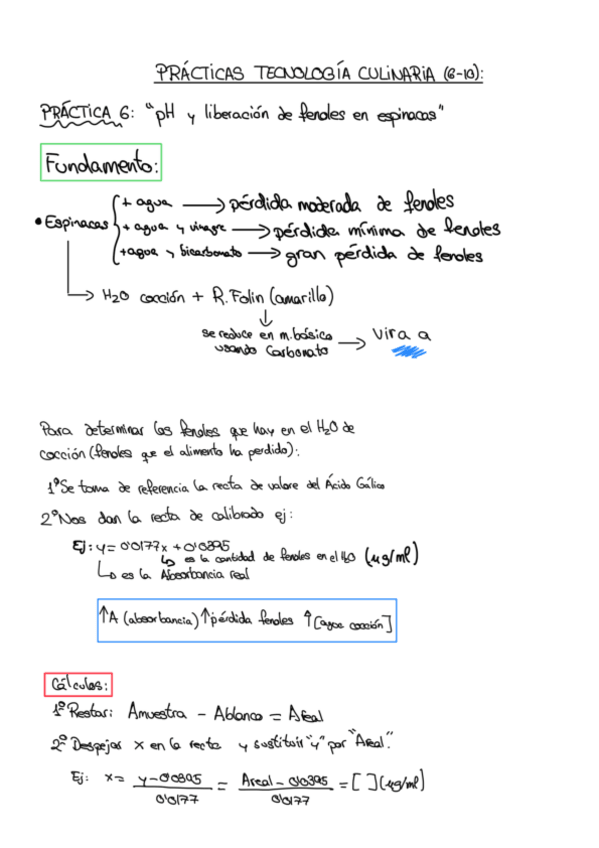 PRÁCTICAS TECNOLOGÍA CULINARIA (6-10):
PRÁCTICA 6: "pH y liberación de fenoles en espinacas"
Fundamento:
• Espinacas
+ agua → pérdida moderada de fenoles
+ agua y vinagre → pérdida mínima de fenoles
+ agua y bicarbonato → gran pérdida de fenoles
→ H2O cocción + R. Folin (amarillo)
↓
se reduce en m. básico → vira a
usando Carbonato
Para determinar los fenoles que hay en el H2O de
cocción (fenoles que el alimento ha perdido):
1º Se toma de referencia la recta de valore del Ácido Gálico
2º Nos dan la recta de calibrado ej:
Ej: y = 0'0177x + 0'0395
↳ es la cantidad de fenoles en el H2O (µg/ml)
↳ es la Absorbancia real
↑A (absorbancia) ↑pérdida fenoles ↑[agua cocción]
Cálculos:
1º Restar: Amuestra - Ablanco = Areal
2º Despejar x en la recta y sustituir "y" por "Areal".
Ej: x = y - 0'0395 / 0'0177 = Areal - 0'0395 / 0'0177 = [ ] (µg/ml)